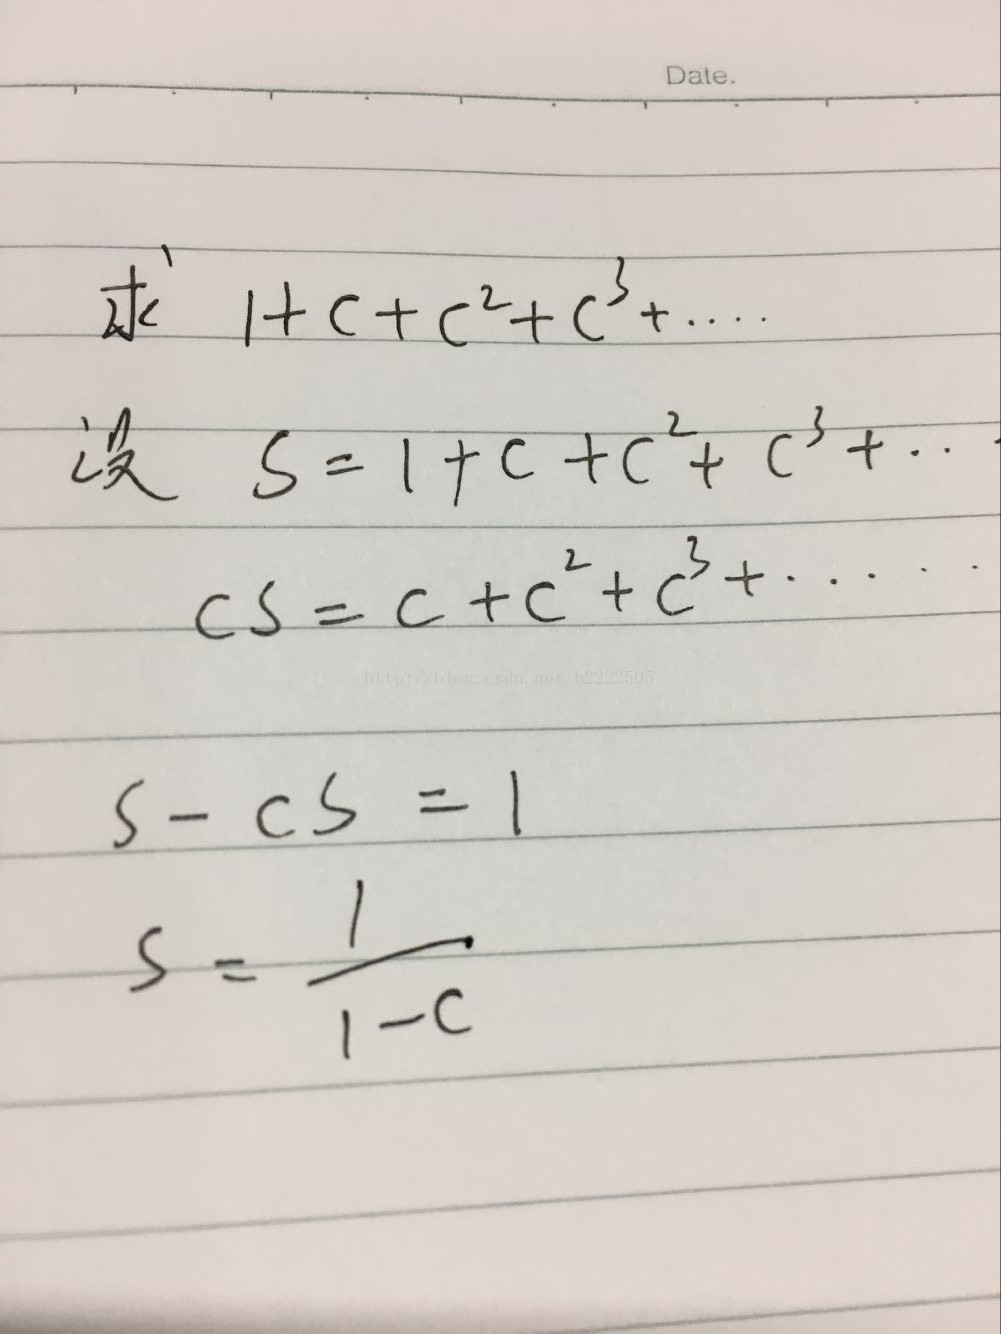 Date.
求 1+c+c²+c³+....
设 S=1+c+c²+c³+...
cS=c+c²+c³+......
http://blog.csdn.net/b2222505
S-cS=1
S=1/(1-c)